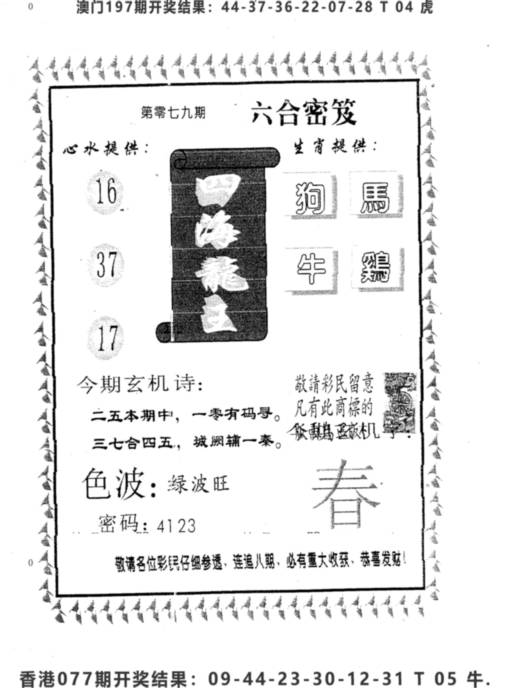 澳门197期开奖结果：44-37-36-22-07-28 T 04 虎
第零七九期
六合密笈
心水提供：
生肖提供：
16
37
17
四海龍王
狗
馬
牛
鷄
今期玄机诗：
二五本期中，一零有码寻。
三七合四五，城阙辅一秦。
敬請彩民留意
凡有此商標的
色波：绿波旺
密码：4123
春
敬请各位彩民仔细参透、连追八期、必有重大收获、恭喜发财！
香港077期开奖结果：09-44-23-30-12-31 T 05 牛.